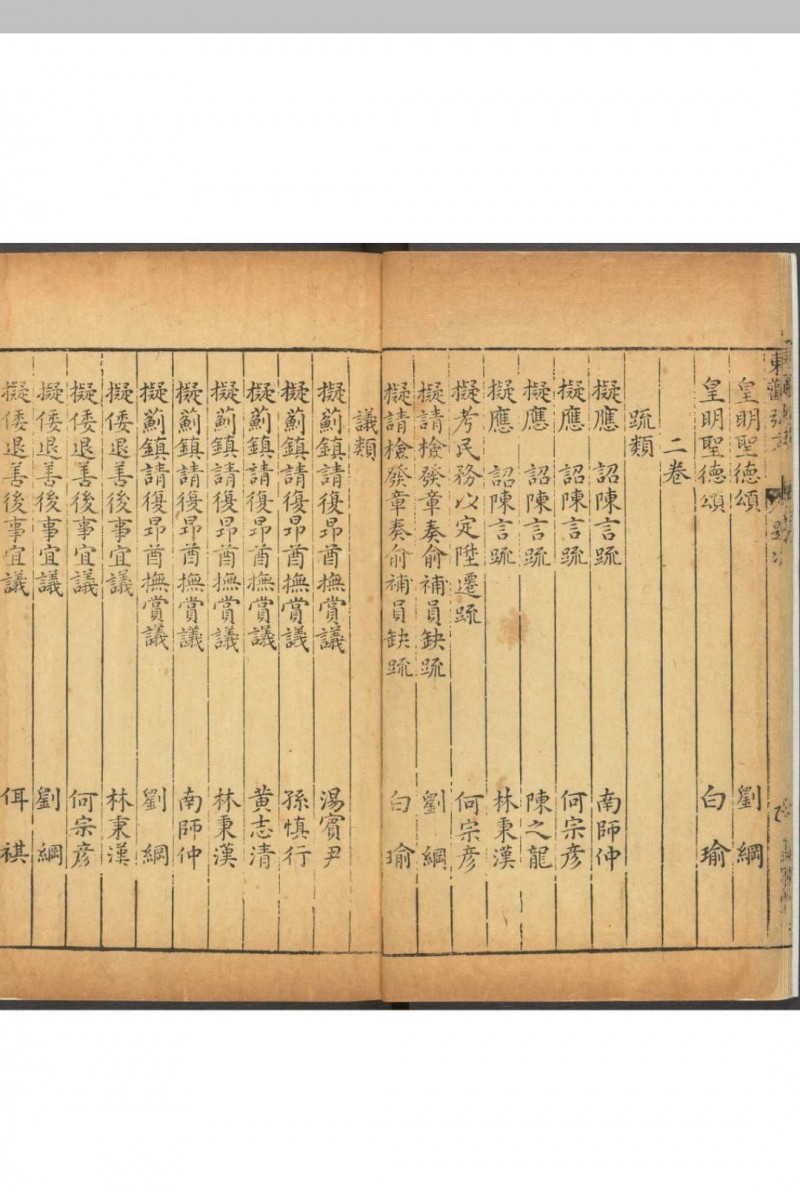 皇明聖德頌 劉綱
皇明聖德頌 白瑜
二卷
疏類
擬應 詔陳言疏 南師仲
擬應 詔陳言疏 何宗彥
擬應 詔陳言疏 陳之龍
擬應 詔陳言疏 林秉漢
擬考民務以定陞遷疏 何宗彥
擬請檢發章奏俞補員缺疏 劉綱
擬請檢發章奏俞補員缺疏 白瑜
議類
擬薊鎮請復昂酋撫賞議 湯賓尹
擬薊鎮請復昂酋撫賞議 孫慎行
擬薊鎮請復昂酋撫賞議 黄志清
擬薊鎮請復昂酋撫賞議 林秉漢
擬薊鎮請復昂酋撫賞議 南師仲
擬薊鎮請復昂酋撫賞議 劉綱
擬倭退善後事宜議 林秉漢
擬倭退善後事宜議 何宗彥
擬倭退善後事宜議 劉綱
擬倭退善後事宜議 佴祺